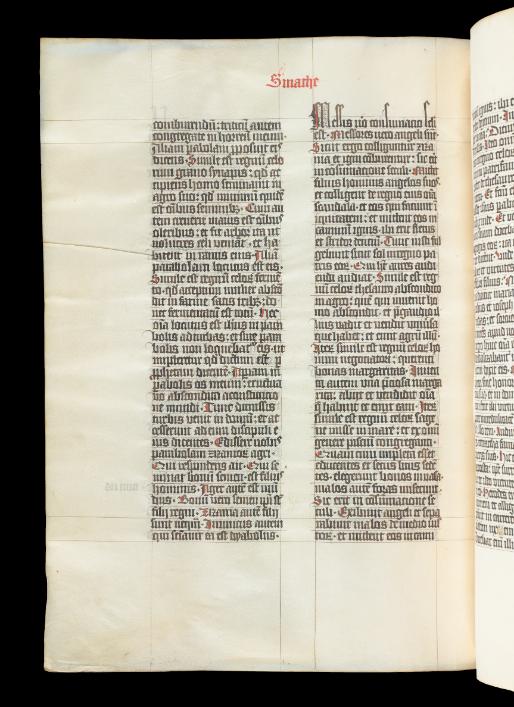 S. mathe
comburendū: triticū autem
congregate in horreū meum·
Aliam pabolam proposuit eis
dicens· Simile est regnū celo
rum grano synapis: qđ ac
cipiens homo seminauit in
agro suo: qđ minimū quidē
est oībus seminibꝫ· Cum au
tem creuerit maius est oībus
oleribus: et fit arbor ita ut
volucres celi veniāt· et ha
bitent in ramis eius· Aliā
parabolam locutus est eis·
Simile est regnū celoꝝ fermē
to· qđ acceptum mulier abscō
dit in farine satis tribꝫ: do
nec fermentatū est totū· Hec
oīa locutus est ihūs in para
bolis ad turbas: et sine para
bolis non loquebatʳ eis· ut
impleretur qđ dictum est ꝑ
ꝓphetam dicentē· Aperiam in
pabolis os meum: eructua
bo abscondita a constitucio
ne mundi· Tunc dimissis
turbis venit in domū: et ac
cesserunt ad eum discipuli e
ius dicentes· Edissere nobis
parabolam zizanioꝝ agri·
Qui respondens ait· Qui se
minat bonū semen: est filius
hominis· Ager autē est mū
dus· Bonū vero semen hij st̄
filij regni· Zizania autē filij
sunt nequā· Inimicus autem
qui seīauit ea est dyabolus·
Messis vͦ consumacio seli
est· Messores vero angeli sūt·
Sicut ergo colliguntur ziza
nia et igni comburentur: sic erit
in consumacione seculi· Mittet
filius hominis angelos suos·
et colligent de regno eius oīa
scandala· et eos qui faciunt
iniquitatem: et mittent eos in
caminū ignis· ibi erit fletus
et stridor dentiū· Tunc iusti ful
gebunt sicut sol in regno pa
tris eoꝝ· Qui hꝫ aures audi
endi audiat· Simile est reg
nū celoꝝ thesauro abscondito
in agro: quē qui inuenit ho
mo abscondit· et p̄ gaudio il
lius vadit et vendit vniuersa
que habet: et emit agrū illū·
Iterū simile est regnū celoꝝ ho
mini negociatori: querenti
bonas margaritas· Inuen
ta autem vna p̄ciosa marga
rita: abijt et vendidit oīa
q̄ habuit et emit eam· Iterū
simile est regnū celoꝝ sage
ne misse in mare: et ex omi
genere pisciū congreganti·
Quam cum impleta esset
educentes et secus litus sedē
tes· elegerunt bonos in vasa·
malos autē foras miserunt·
Sic erit in consumacione se
culi· Exibunt angeli et sepa
rabunt malos de medio ius
toꝝ· et mittent eos in cami